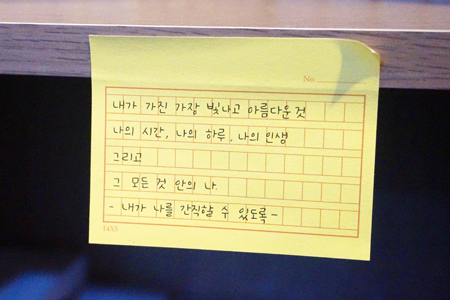 No.
내가 가진 가장 빛나고 아름다운 것
나의 시간, 나의 하루, 나의 인생
그리고
그 모든 것 안의 나.
- 내가 나를 간직할 수 있도록 -
1455